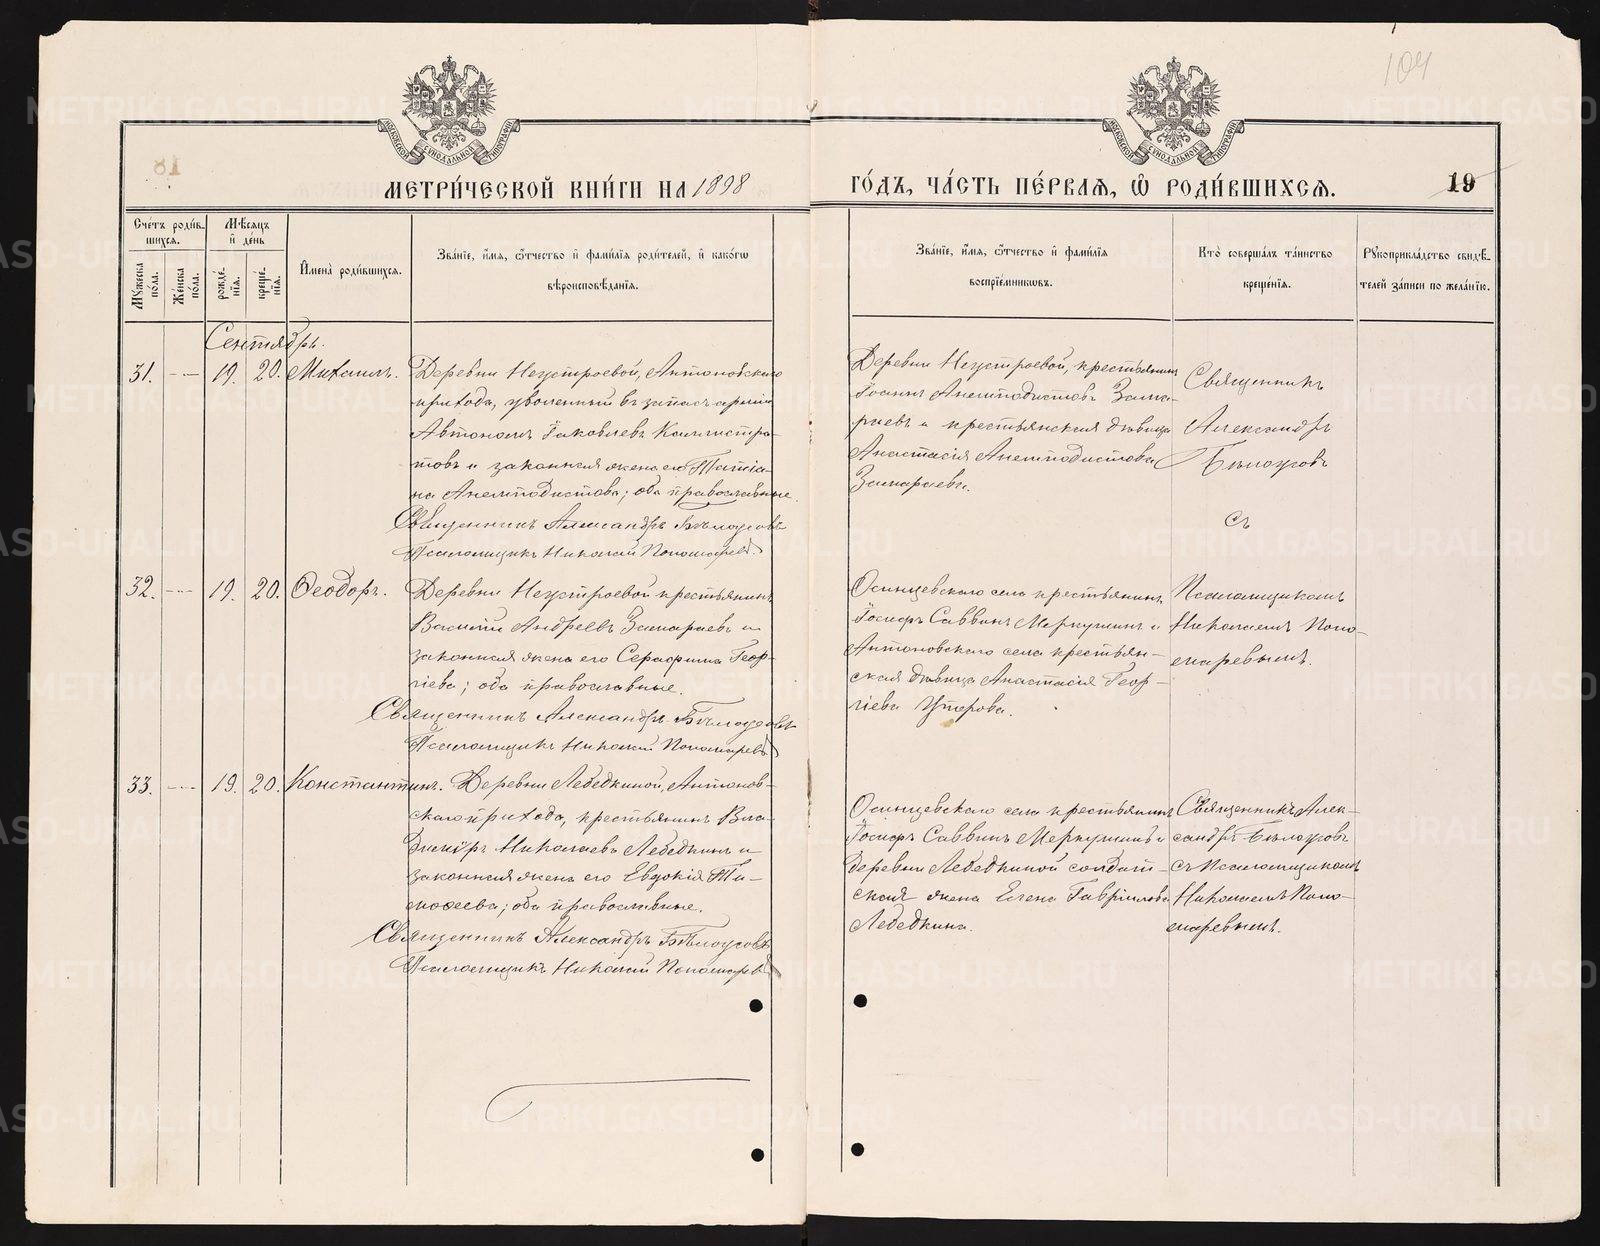 104
МЕТРИ́ЧЕСКОЙ КНИ́ГИ НА 1898
ГО́ДЪ, ЧА́СТЬ ПЕ́РВАѦ, Ѡ҆ РОДИ́ВШИХСѦ.
19
18
Сче́тъ роди́в-
шихсѧ.
Мѣ́сѧцъ
и҆ де́нь
Мꙋ́жеска
по́ла.
Же́нска
по́ла.
рожде́-
нїѧ.
креще́-
нїѧ.
И҆мена̀ роди́вшихсѧ.
Зва́нїе, и҆́мѧ, ѻ҆́тчество и҆ фами́лїѧ роди́телей, и҆ како́гѡ
вѣроисповѣ́данїѧ.
Зва́нїе, и҆́мѧ, ѻ҆́тчество и҆ фами́лїѧ
воспрїе́мникѡвъ.
Кто̀ соверша́лъ та́инство
креще́нїѧ.
Рꙋкоприкла́дство свидѣ́-
телей за́писи по жела́нїю.
Сентябрь.
31. - - 19. 20. Михаилъ.
Деревни Неустроевой, Антоновскаго
прихода, уволенный въ запасъ арміи
Автономъ Іаковлевъ Каллистра-
товъ и законная жена его Татіа-
на Анемподистова; оба православные.
Священникъ Александръ Бѣлоусовъ
Псаломщикъ Николай Пономаревъ
Деревни Неустроевой, крестьянинъ
Іоаннъ Анемподистовъ Зама-
раевъ и крестьянская дѣвица
Анастасія Анемподистова
Замараева.
Священникъ
Александръ
Бѣлоусовъ
съ
32. - - 19. 20. Ѳеодоръ.
Деревни Неустроевой крестьянинъ
Василій Андреевъ Замараевъ и
законная жена его Серафима Геор-
гіева; оба православные.
Священникъ Александръ Бѣлоусовъ
Псаломщикъ Николай Пономаревъ
Осинцевскаго села крестьянинъ
Іосифъ Саввинъ Меркушинъ и
Антоновскаго села крестьян-
ская дѣвица Анастасія Геор-
гіева Упорова.
Псаломщикомъ
Николаемъ Поно-
маревымъ.
33. - - 19. 20. Константинъ.
Деревни Лебедкиной, Антонов-
скаго прихода, крестьянинъ Вла-
диміръ Николаевъ Лебедкинъ и
законная жена его Евдокія Ти-
моѳеева; оба православные.
Священникъ Александръ Бѣлоусовъ
Псаломщикъ Николай Пономаревъ
Осинцевскаго села крестьянинъ
Іосифъ Саввинъ Меркушинъ и
деревни Лебедкиной солдат-
ская жена Елена Гавріилова
Лебедкина.
Священникъ Алек-
сандръ Бѣлоусовъ
съ Псаломщикомъ
Николаемъ Поно-
маревымъ.